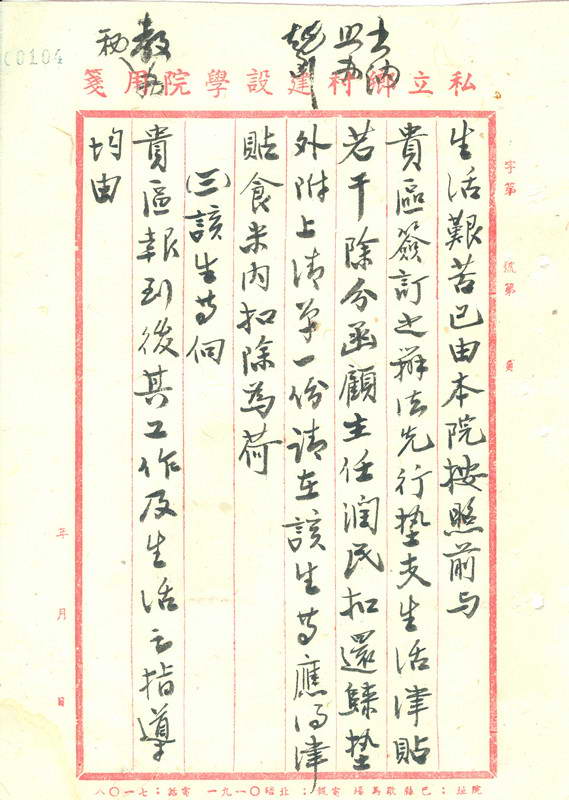 00104
私立鄉村建設學院用箋
字第 號第 頁
生活艱苦已由本院按照前与
貴區簽訂之辦法先行墊支生活津貼
若干除分函顧主任潤民扣還歸墊
外附上清单一份請在該生等應得津
貼食米內扣除為荷
(三)該生等伺
貴區報到後其工作及生活之指導
均由
年 月 日
院址：巴縣歇馬場 電報：北碚〇一九一 電話：七一〇八